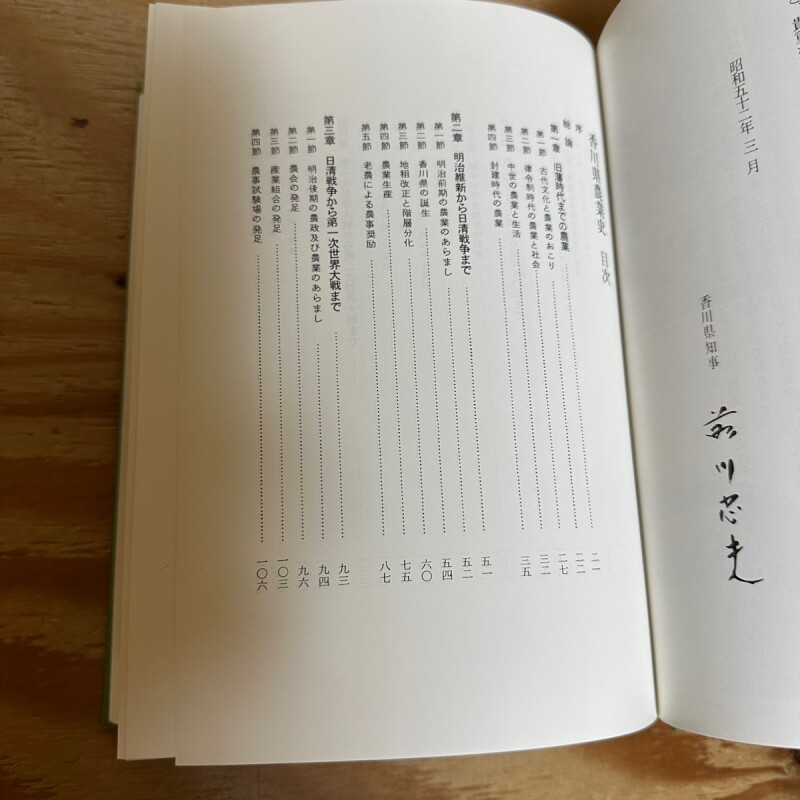 昭和五十二年三月
香川県知事
前川忠夫
香川県農業史 目次
序
総論
第一章 旧藩時代までの農業 二一
第一節 古代文化と農業のおこり 二二
第二節 律令制時代の農業と社会 二七
第三節 中世の農業と生活 三二
第四節 封建時代の農業 三五
第二章 明治維新から日清戦争まで 五一
第一節 明治前期の農業のあらまし 五二
第二節 香川県の誕生 五四
第三節 地租改正と階層分化 六〇
第四節 農業生産 七五
第五節 老農による農事奨励 八七
第三章 日清戦争から第一次世界大戦まで 九三
第一節 明治後期の農政及び農業のあらまし 九四
第二節 農会の発足 九六
第三節 産業組合の発足 一〇三
第四節 農事試験場の発足 一〇六